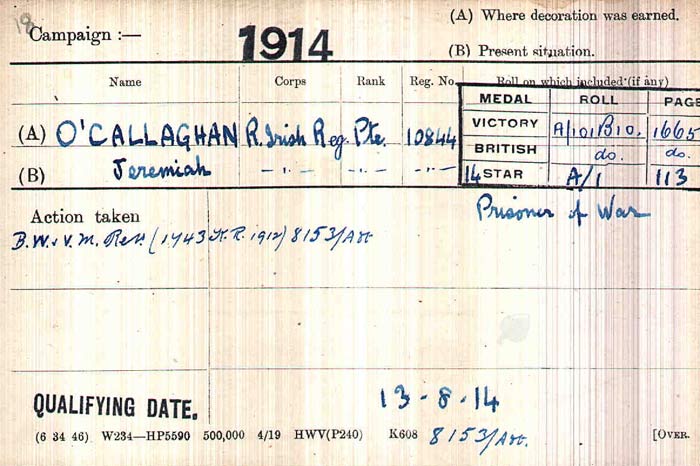 Campaign :— 1914
(A) Where decoration was earned.
(B) Present situation.
Name Corps Rank Reg. No. Roll on which included (if any)
MEDAL ROLL PAGE
(A) O'CALLAGHAN R. Irish Reg. Pte. 10844
VICTORY A/101B10. 1665
BRITISH do. do.
(B) Jeremiah —"— —"— —"—
14 STAR A/1 113
Action taken
Prisoner of War
B.W. & V.M. Ret. (1743 K.R. 1912) 8153/Adt.
QUALIFYING DATE. 13-8-14
(6 34 46) W234—HP5590 500,000 4/19 HWV(P240) K608 8153/Adt. [OVER.